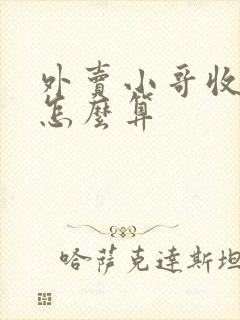 外賣小哥收
怎麼算
哈薩克達斯坦